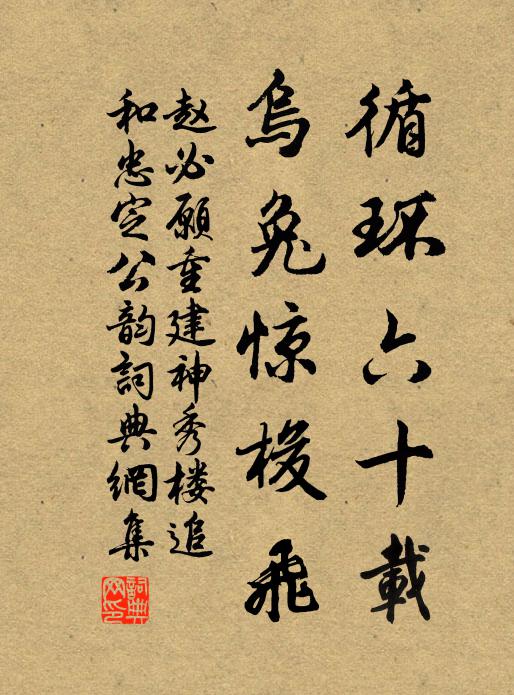 循环六十載
烏兔惊梭飛
赵必愿重建神秀楼追
和忠定公韵詞典網集
詞典网印